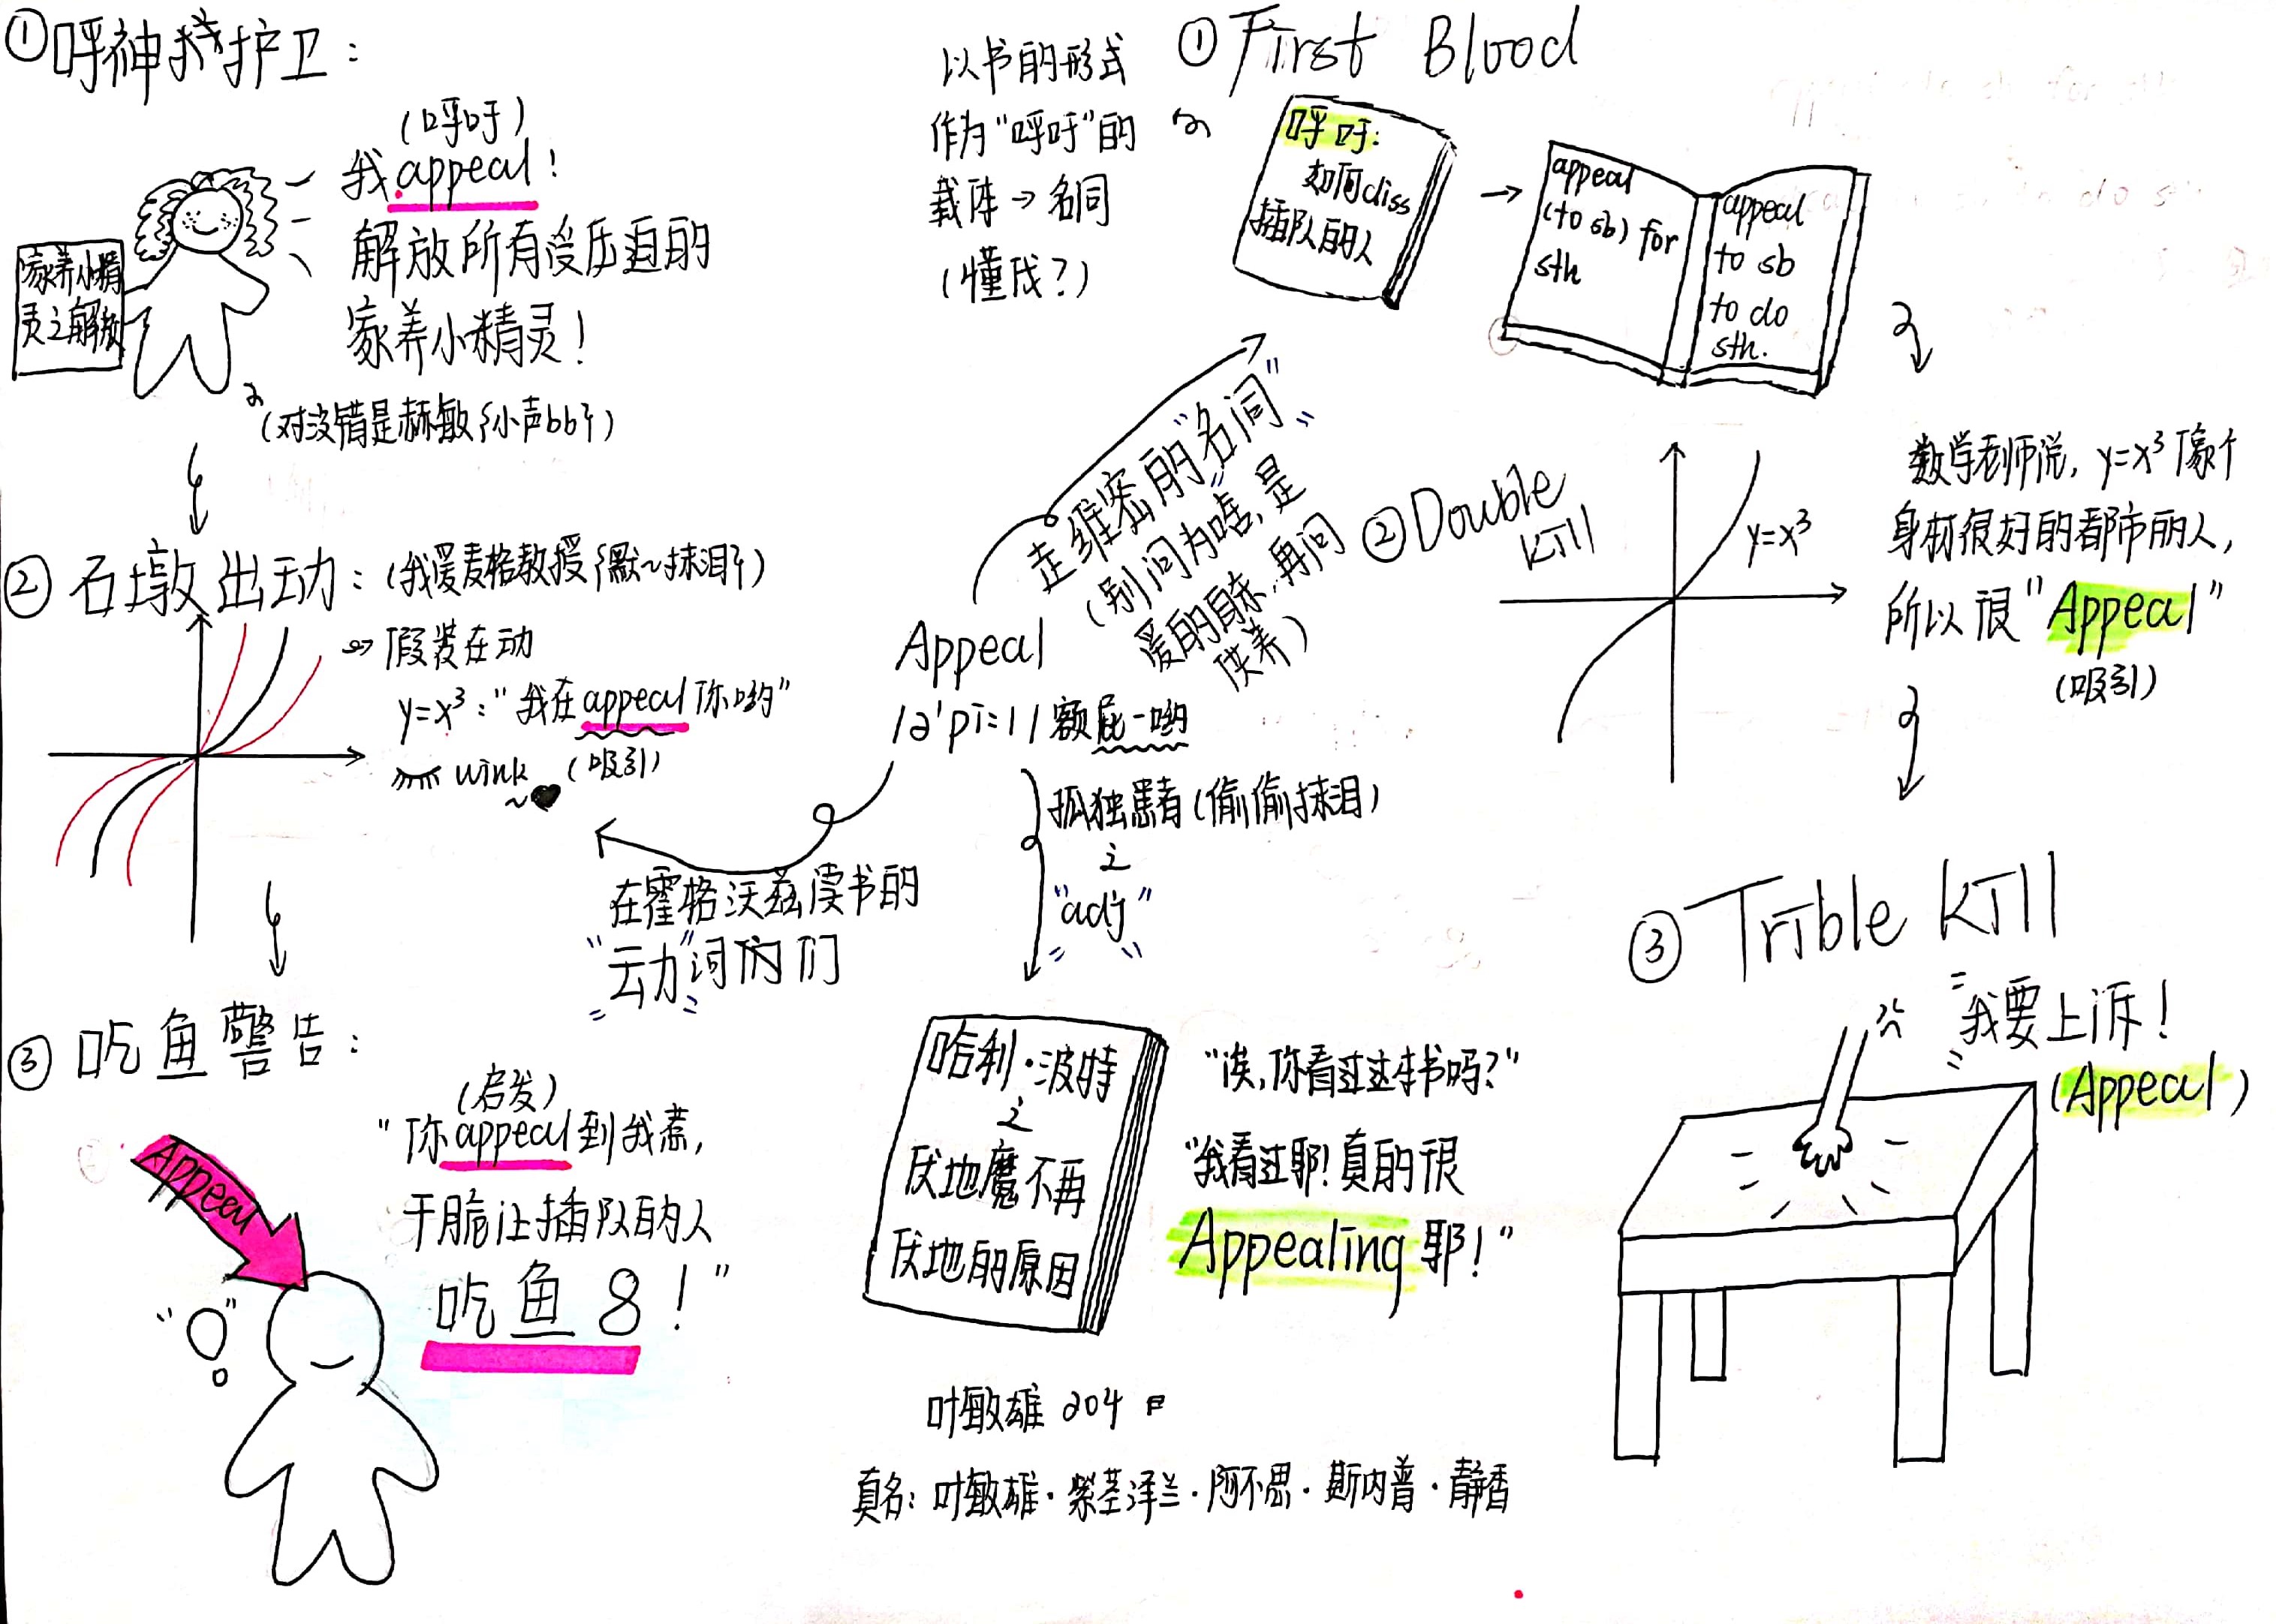 ①呼神护卫：
（呼吁）
我appeal！
解放所有受压迫的
家养小精灵！
家养小精
灵之解放
（对没错是赫敏{小声bb}）
②石墩出动：（我爱麦格教授{默~抹泪}）
假装在动
y=x³："我在appeal你哟"
wink ~ （吸引）
③吃鱼警告：
（启发）
"你appeal到我惹，
干脆让插队的人
吃鱼8！"
Appeal
以书的形式
作为"呼吁"的
载体→名词
（懂伐？）
①First Blood
呼吁：
如何diss
插队的人
appeal
(to sb) for
sth
appeal
to sb
to do
sth.
走维密的"名词"
（别问为啥，是
爱的自味，再问
供养）
Appeal
/ə'pi:l/ 额屁一哟
在霍格沃兹读书的
"动"词们
孤独患者（偷偷抹泪）
之
"adj"
②Double
Kill
y=x³
数学老师说，y=x³像个
身材很好的都市丽人，
所以很"Appeal"
（吸引）
③Trible Kill
我要上诉！
（Appeal）
哈利·波特
之
伏地魔不再
伏地的原因
"诶，你看过这本书吗？"
"我看过耶！真的很
Appealing耶！"
叶敏雄 204
真名：叶敏雄·紫茎泽兰·阿不思·斯内普·静香